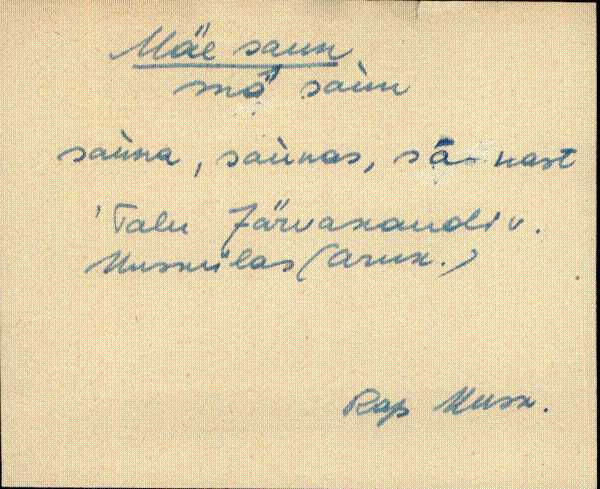 Mäe saun
mä saùn
saùna, saùnas, sā-nast
'Talu Järvakandi v.
(Arux.)
Rap